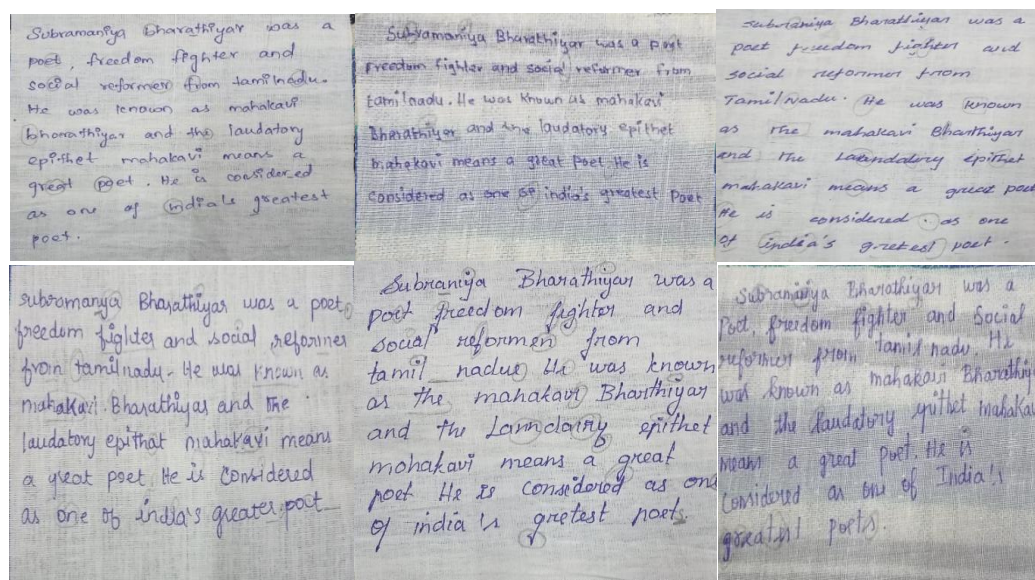 Subramaniya Bharathiyar was a
poet, freedom fighter and
social reformer from tamilnadu.
He was known as mahakavi
bharathiyar and the laudatory
epithet mahakavi means a
great poet. He is considered
as one of india's greatest
poet.
Subramaniya Bharathiyar was a poet
Freedom fighter and social reformer from
tamilnadu. He was known as mahakavi
Bharathiyer and the laudatory epithet
mahakavi means a great poet. He is
considered as one of india's greatest Poet
Subraniya Bharathiyar was a
poet freedom fighter and
social reformer from
TamilNadu. He was known
as the mahakavi Bharthiyar
and the Laundatory epithet
mahakavi means a great poet
He is considered as one
of india's gretest poet.
subromanya Bharathiyar was a poet,
freedom fighter and social reformer
from tamilnadu. He was known as
mahakavi Bharathiyar and the
laudatory epithat mahakavi means
a great poet He is considered
as one of india's greater poet
Subraniya Bharathiyar was a
poet freedom fighter and
social reformen from
tamil nadu He was known
as the mahakavi Bharthiyar
and the epithet
mohakavi means a great
poet He is considered as one
of india's gretest poets.
Subramaniya Bharathiyar was a
Poet, freedom fighter and Social
reformer from tamil nadu. He
was known as mahakavi Bharathiy
and the laudatory epithet mahakav
means a great poet. He is
Considered as one of India's
greatest poets.